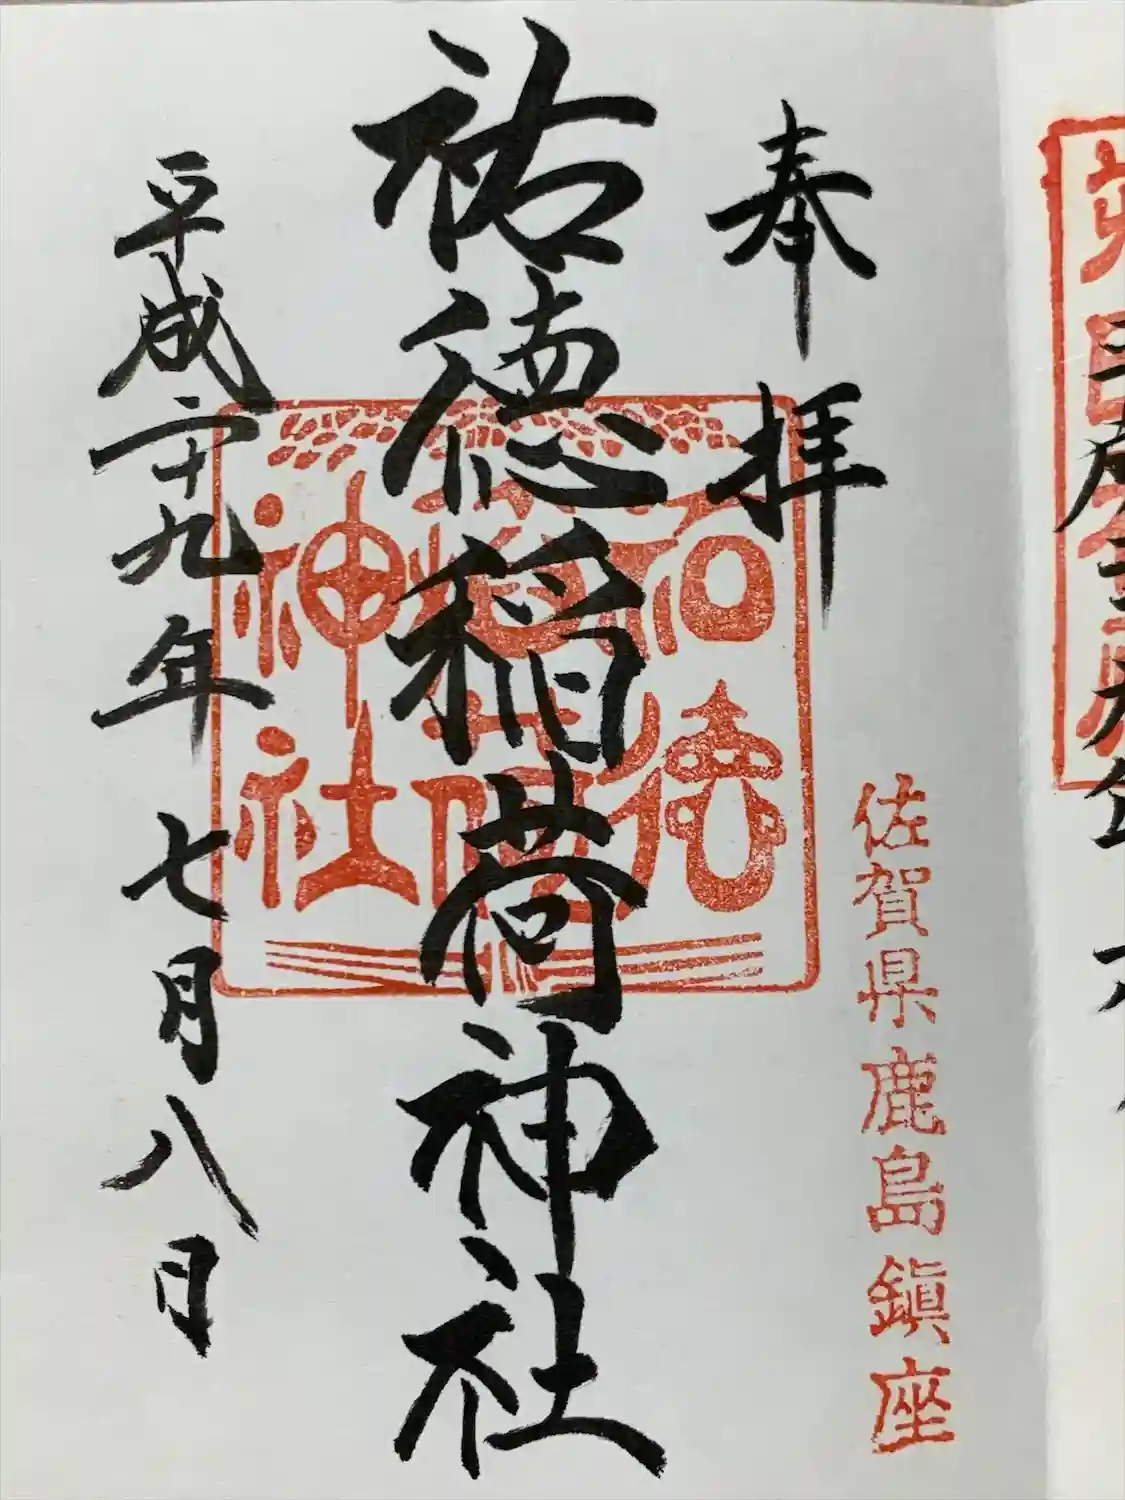 奉拝
佐賀県鹿島鎮座
祐徳稲荷神社
祐徳稲荷神社
平成二十九年七月八日